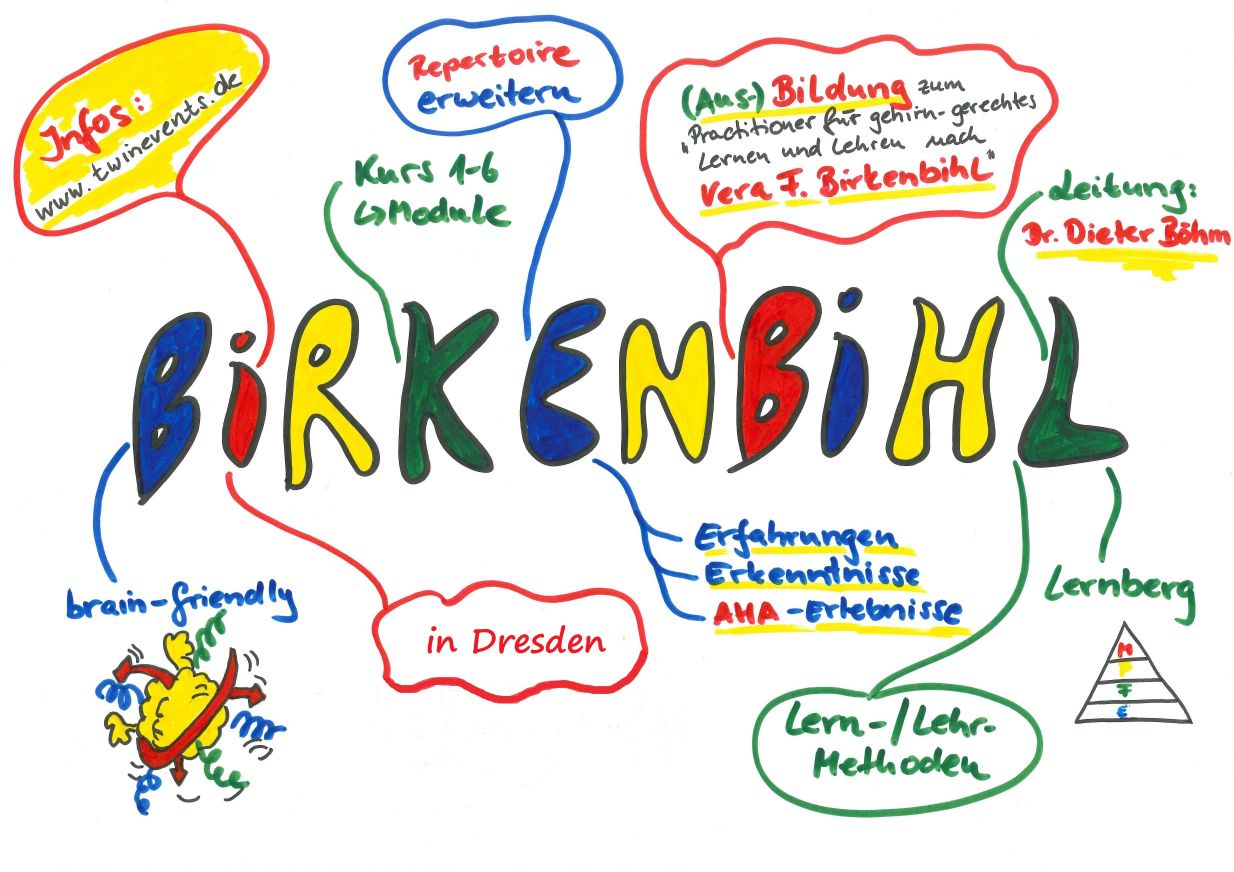 Infos:
www.twinevents.de
Repertoire
erweitern
Kurs 1-6
↳Module
(Aus-) Bildung zum
"Practitioner für gehirn-gerechtes
Lernen und Lehren nach
Vera F. Birkenbihl"
Leitung:
Dr. Dieter Böhm
BiRKENBiHL
brain-friendly
in Dresden
Erfahrungen
Erkenntnisse
AHA-Erlebnisse
Lern-/Lehr-
Methoden
Lernberg
M
P
F
E